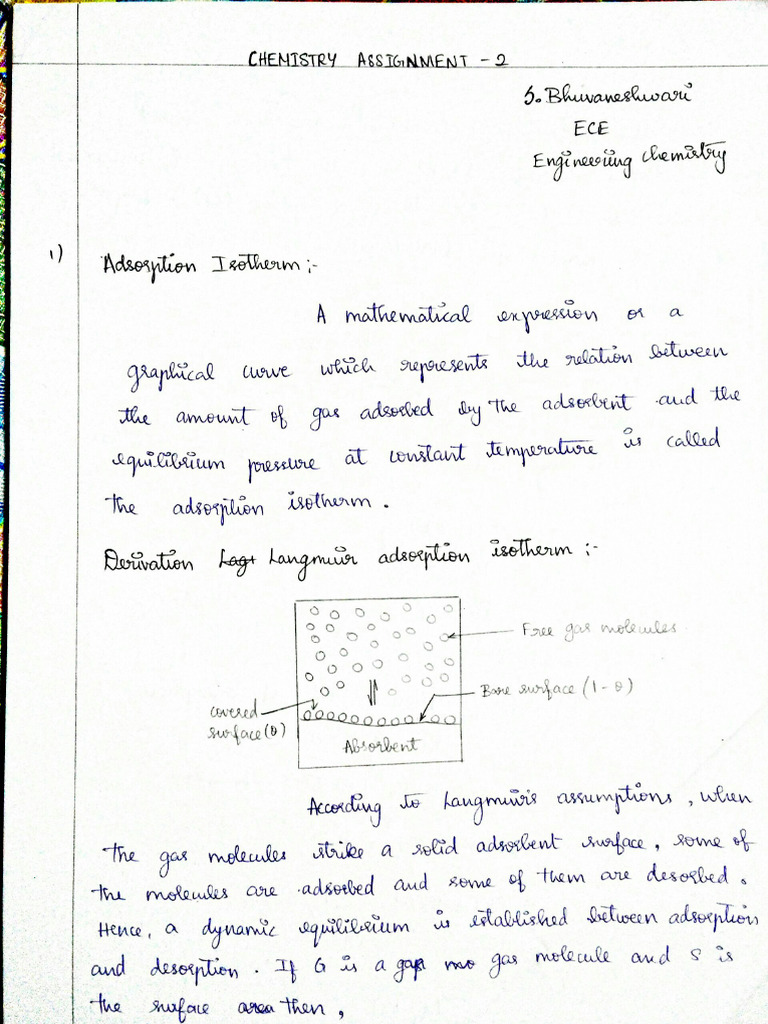 CHEMISTRY ASSIGNMENT - 2
S. Bhuvaneshwari
ECE
Engineering chemistry
1) Adsorption Isotherm :-
A mathematical expression or a
graphical curve which represents the relation between
the amount of gas adsorbed by the adsorbent and the
equilibrium pressure at constant temperature is called
the adsorption isotherm.
Derivation Lag Langmuir adsorption isotherm :-
Free gas molecules
Bare surface (1-θ)
covered
surface(θ)
Absorbent
According to Langmuir's assumptions, when
the gas molecules strike a solid adsorbent surface, some of
the molecules are adsorbed and some of them are desorbed.
Hence, a dynamic equilibrium is established between adsorption
and desorption. If G is a gas molecule and S is
the surface area then,